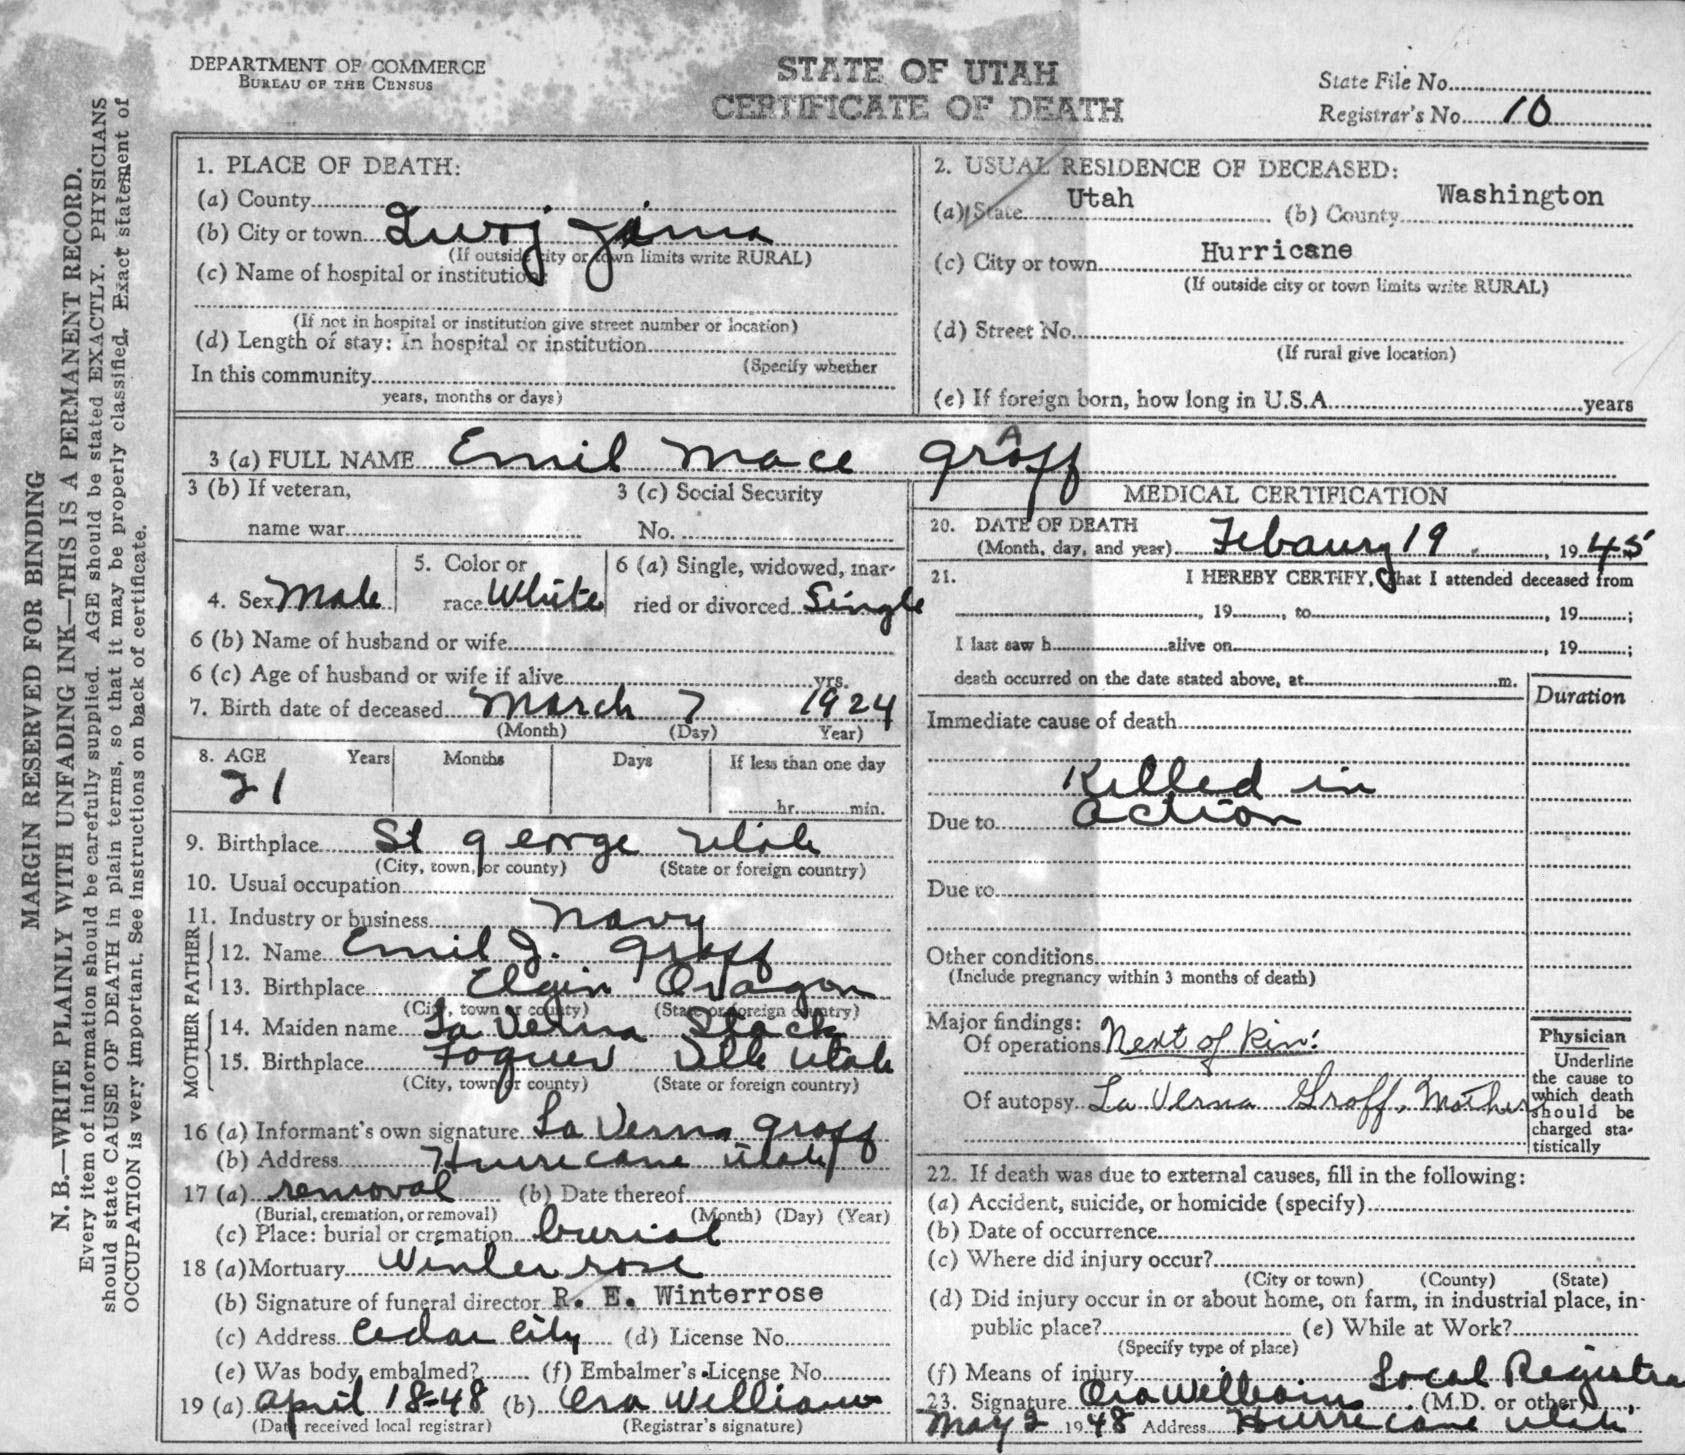 DEPARTMENT OF COMMERCE
BUREAU OF THE CENSUS
STATE OF UTAH
CERTIFICATE OF DEATH
State File No.
Registrar's No. 10
MARGIN RESERVED FOR BINDING
N. B.—WRITE PLAINLY WITH UNFADING INK—THIS IS A PERMANENT RECORD.
Every item of information should be carefully supplied. AGE should be stated EXACTLY. PHYSICIANS
should state CAUSE OF DEATH in plain terms, so that it may be properly classified. Exact statement of
OCCUPATION is very important. See instructions on back of certificate.
1. PLACE OF DEATH:
(a) County
(b) City or town Iwoj Jima
(If outside city or town limits write RURAL)
(c) Name of hospital or institution:
(If not in hospital or institution give street number or location)
(d) Length of stay: In hospital or institution
(Specify whether
In this community
years, months or days)
2. USUAL RESIDENCE OF DECEASED:
(a) State Utah (b) County Washington
(c) City or town Hurricane
(If outside city or town limits write RURAL)
(d) Street No.
(If rural give location)
(e) If foreign born, how long in U.S.A. years
3 (a) FULL NAME Emil Mace Graff
A
3 (b) If veteran,
name war
3 (c) Social Security
No.
4. Sex Male
5. Color or
race White
6 (a) Single, widowed, mar-
ried or divorced Single
6 (b) Name of husband or wife
6 (c) Age of husband or wife if alive yrs.
7. Birth date of deceased March 7 1924
(Month) (Day) Year)
8. AGE Years Months Days If less than one day
21
hr. min.
9. Birthplace St George Utah
(City, town, or county) (State or foreign country)
10. Usual occupation
11. Industry or business Navy
FATHER
12. Name Emil J. Graff
13. Birthplace Elgin Oragon
(City, town or county) (State or foreign country)
MOTHER
14. Maiden name La Verna Slack
15. Birthplace Toquer Ville Utah
(City, town or county) (State or foreign country)
16 (a) Informant's own signature La Verna Graff
(b) Address Hurricane Utah
17 (a) removal (b) Date thereof
(Burial, cremation, or removal) (Month) (Day) (Year)
(c) Place: burial or cremation burial
18 (a) Mortuary Winterrose
(b) Signature of funeral director R. E. Winterrose
(c) Address Cedar City (d) License No.
(e) Was body embalmed? (f) Embalmer's License No.
19 (a) April 18-48 (b) Ora William
(Date received local registrar) (Registrar's signature)
MEDICAL CERTIFICATION
20. DATE OF DEATH
(Month, day, and year) Febaury 19, 1945
21. I HEREBY CERTIFY, That I attended deceased from
, 19 , to , 19 ;
I last saw h alive on , 19 ;
death occurred on the date stated above, at m.
Duration
Immediate cause of death
Killed in
Due to Action
Due to
Other conditions
(Include pregnancy within 3 months of death)
Major findings:
Of operations Next of Kin:
Of autopsy La Verna Groff, Mother
Physician
Underline
the cause to
which death
should be
charged sta-
tistically
22. If death was due to external causes, fill in the following:
(a) Accident, suicide, or homicide (specify)
(b) Date of occurrence
(c) Where did injury occur?
(City or town) (County) (State)
(d) Did injury occur in or about home, on farm, in industrial place, in-
public place? (e) While at Work?
(Specify type of place)
(f) Means of injury Local Registra
23. Signature Ora William (M.D. or other)
May 2 1948 Address Hurricane Utah